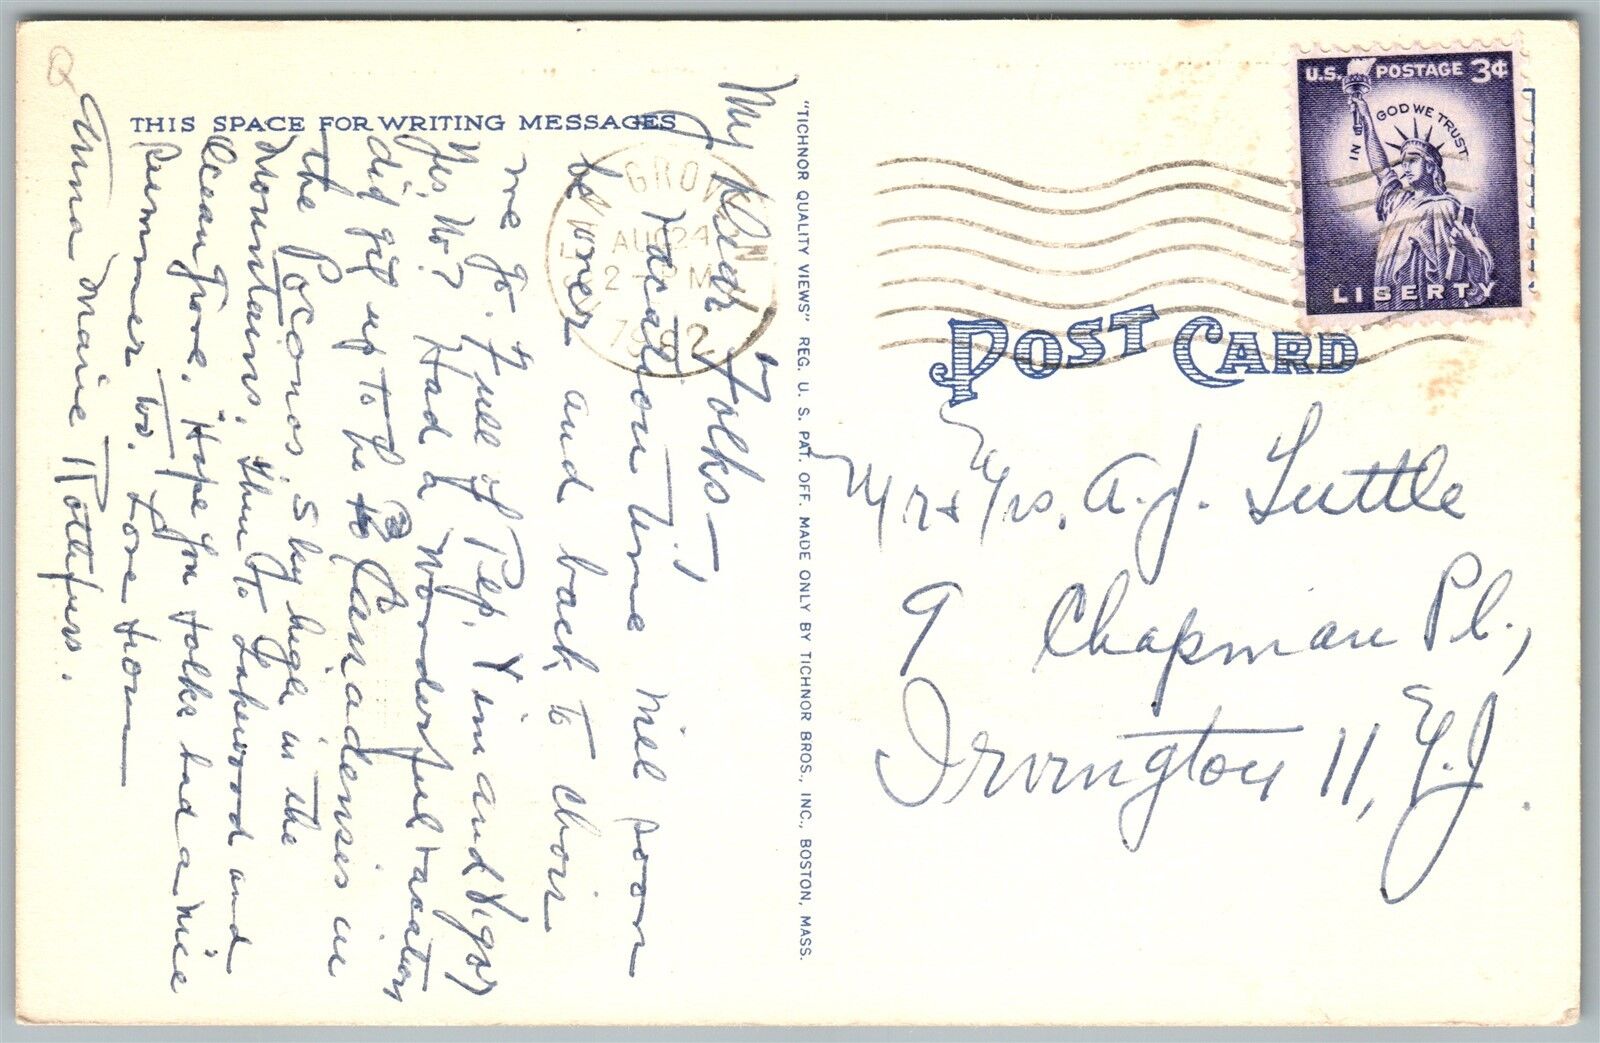 THIS SPACE FOR WRITING MESSAGES
My Dear Folks—
Vacation time will soon
be over and back to choir
we go. Full of Pep, Vim and Vigor
Yes, No? Had a wonderful vacation
did get up to the Canadenses in
the Poconos Sky high in the
Mountains, then to Lakewood and
Ocean Grove. Hope you folks had a nice
summer too. Love from
Anna Marie Rottfuss.
"TICHNOR QUALITY VIEWS" REG. U. S. PAT. OFF. MADE ONLY BY TICHNOR BROS., INC., BOSTON, MASS.
GROVE
AUG 24
2 - PM
1962
U.S. POSTAGE 3¢
IN GOD WE TRUST
LIBERTY
POST CARD
Mr & Mrs. A. J. Tuttle
9 Chapman Pl.,
Irvington 11, N.J.